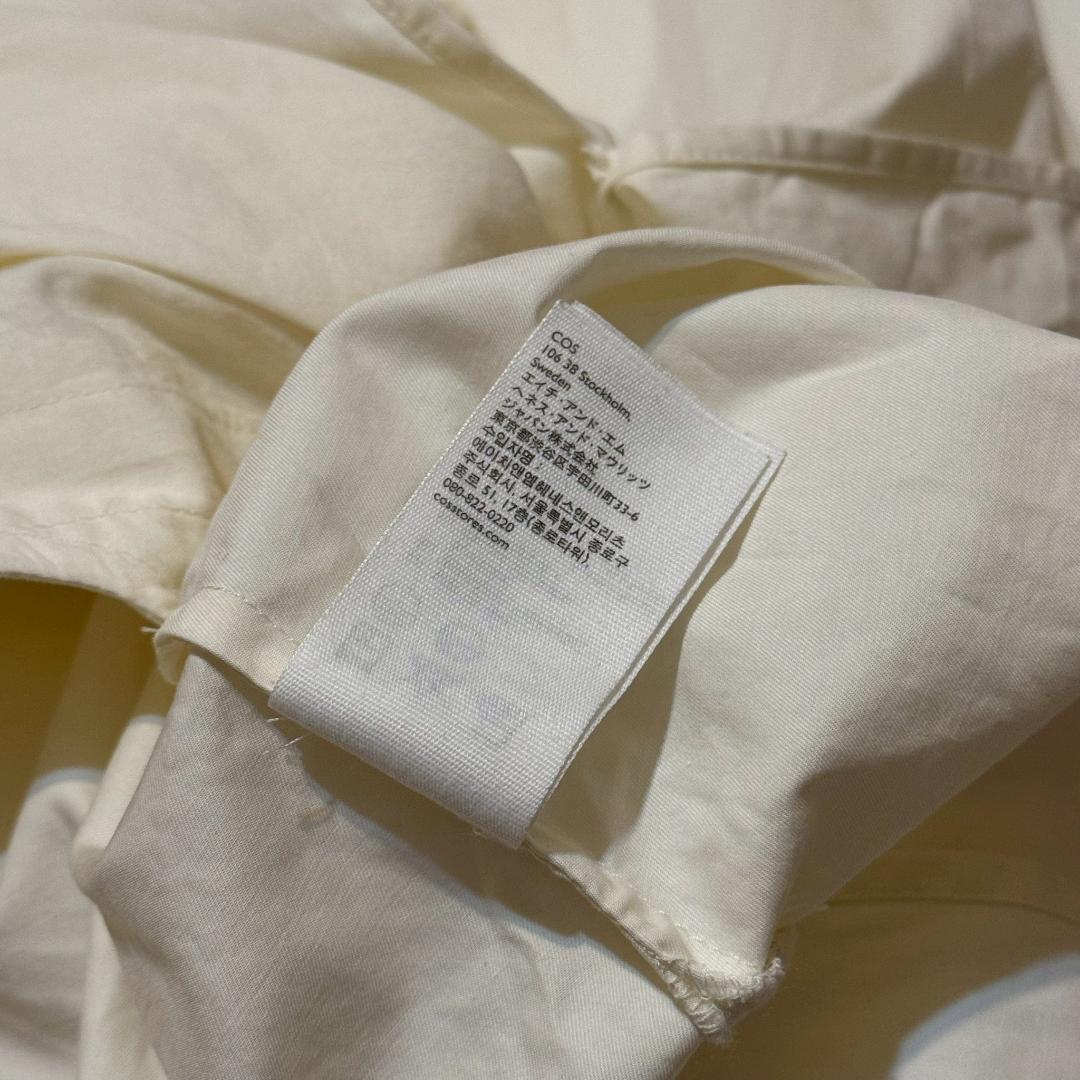 COS
106 38 Stockholm.
Sweden
エイチ・アンド・エム
ヘネス・アンド・マウリッツ
ジャパン株式会社
東京都渋谷区宇田川町33-6
수입자명 :
에이치앤엠헤네스앤모리츠
주식회사, 서울특별시 종로구
종로 51, 17층(종로타워),
080-822-0220
cosstores.com